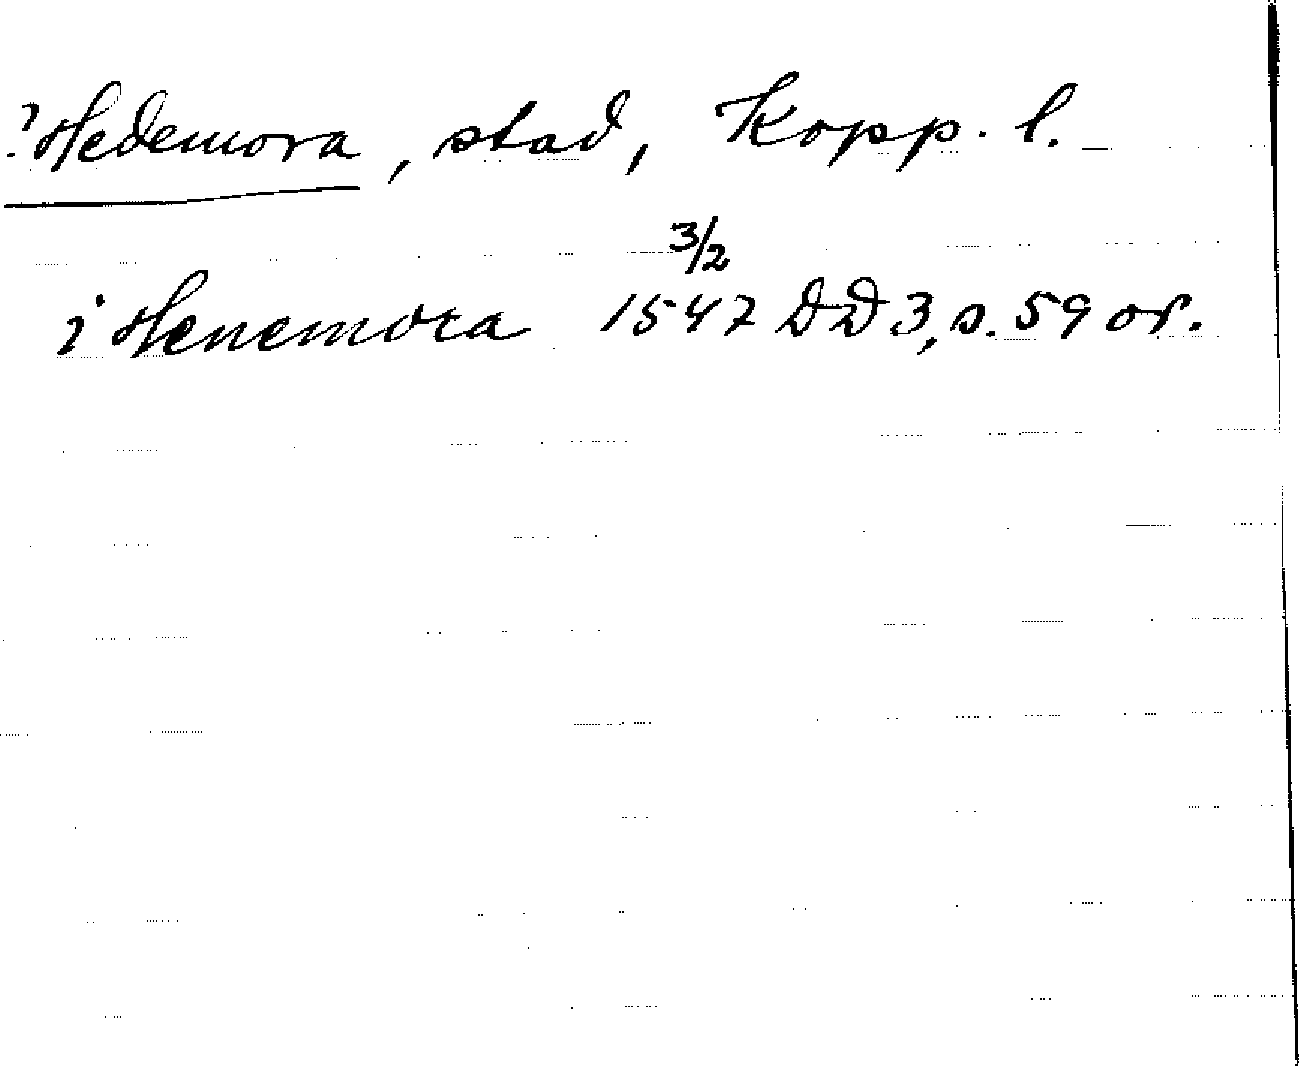 ?Hedemora, stad, Kopp. l.
i Henemora 1547 3/2 DD 3, s. 59 or.